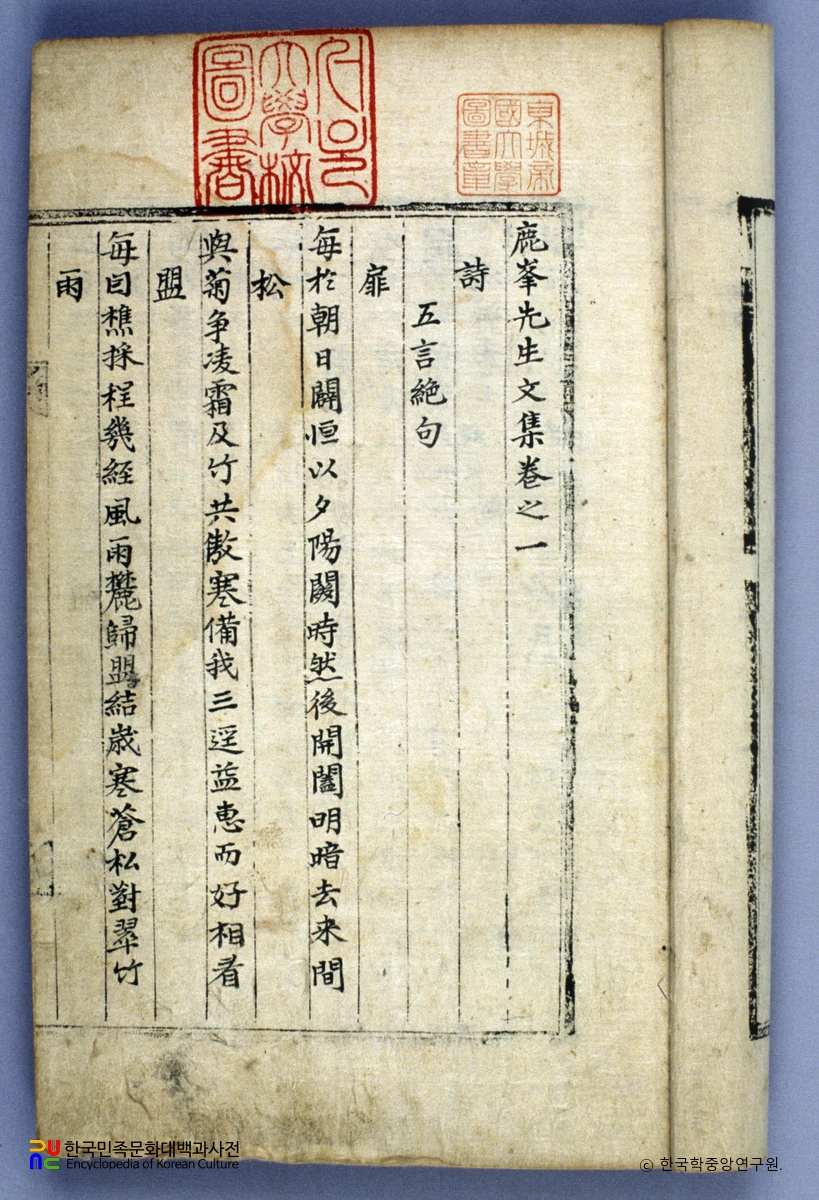 서울
大學校
圖書
京城帝
國大學
圖書章
鹿峯先生文集卷之一
詩
五言絶句
扉
每於朝日闢恒以夕陽闕時然後開闔明暗去来間
松
與菊争凌霜及竹共傲寒備我三逕益惠而好相看
盟
每因樵採程幾経風雨麓歸盟結歳寒蒼松對翠竹
雨
한국민족문화대백과사전
Encyclopedia of Korean Culture
© 한국학중앙연구원.